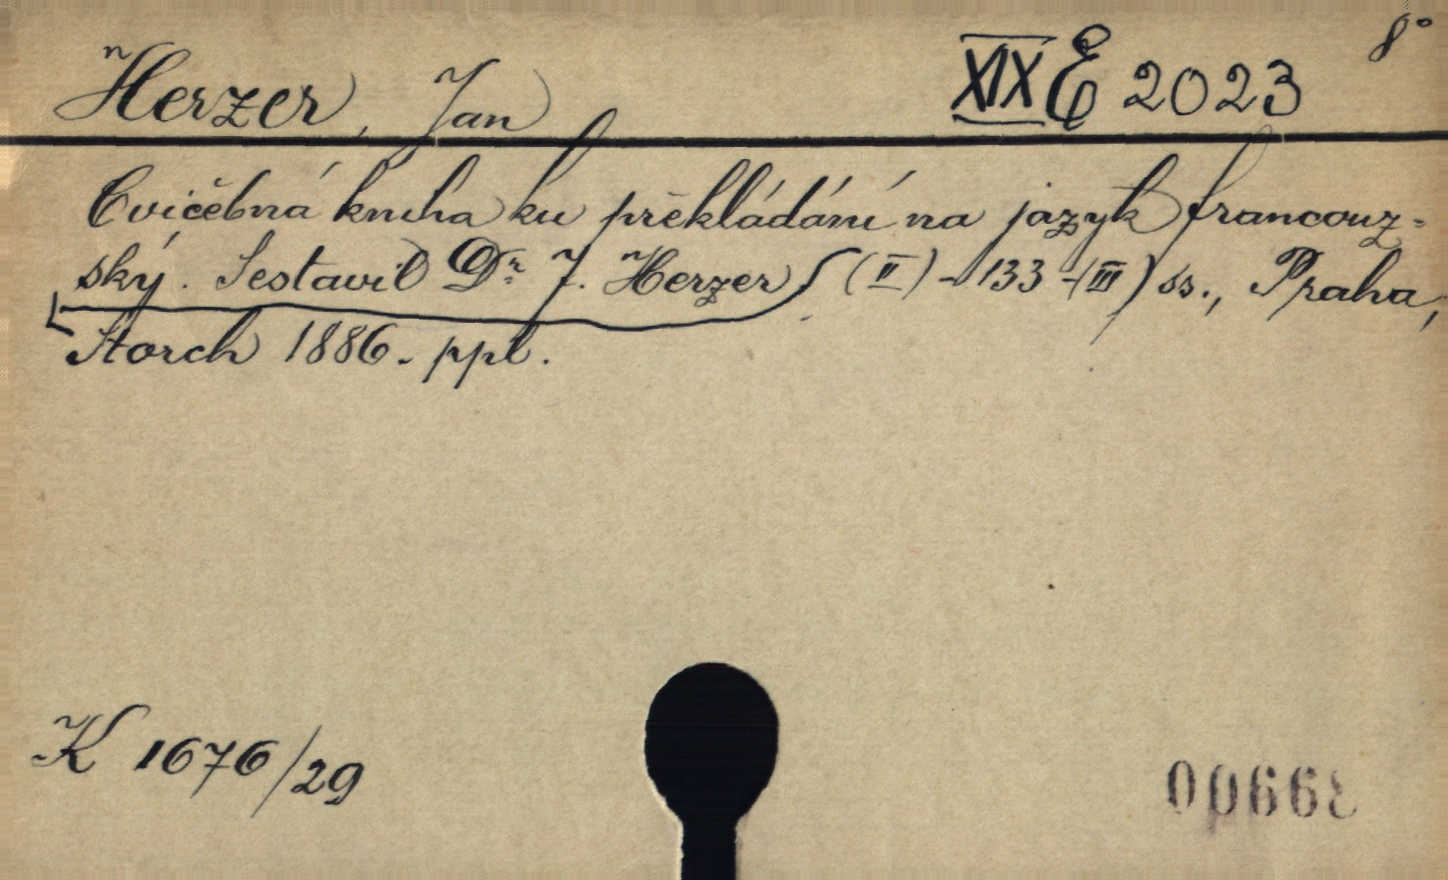 Herzer, Jan XIX E 2023 8°
Cvičebná kniha ku překládání na jazyk francouz-
ský. Sestavil Dr. J. Herzer (II) - 133 - (III) ss., Praha,
Storch 1886. ppl.
K 1676/29